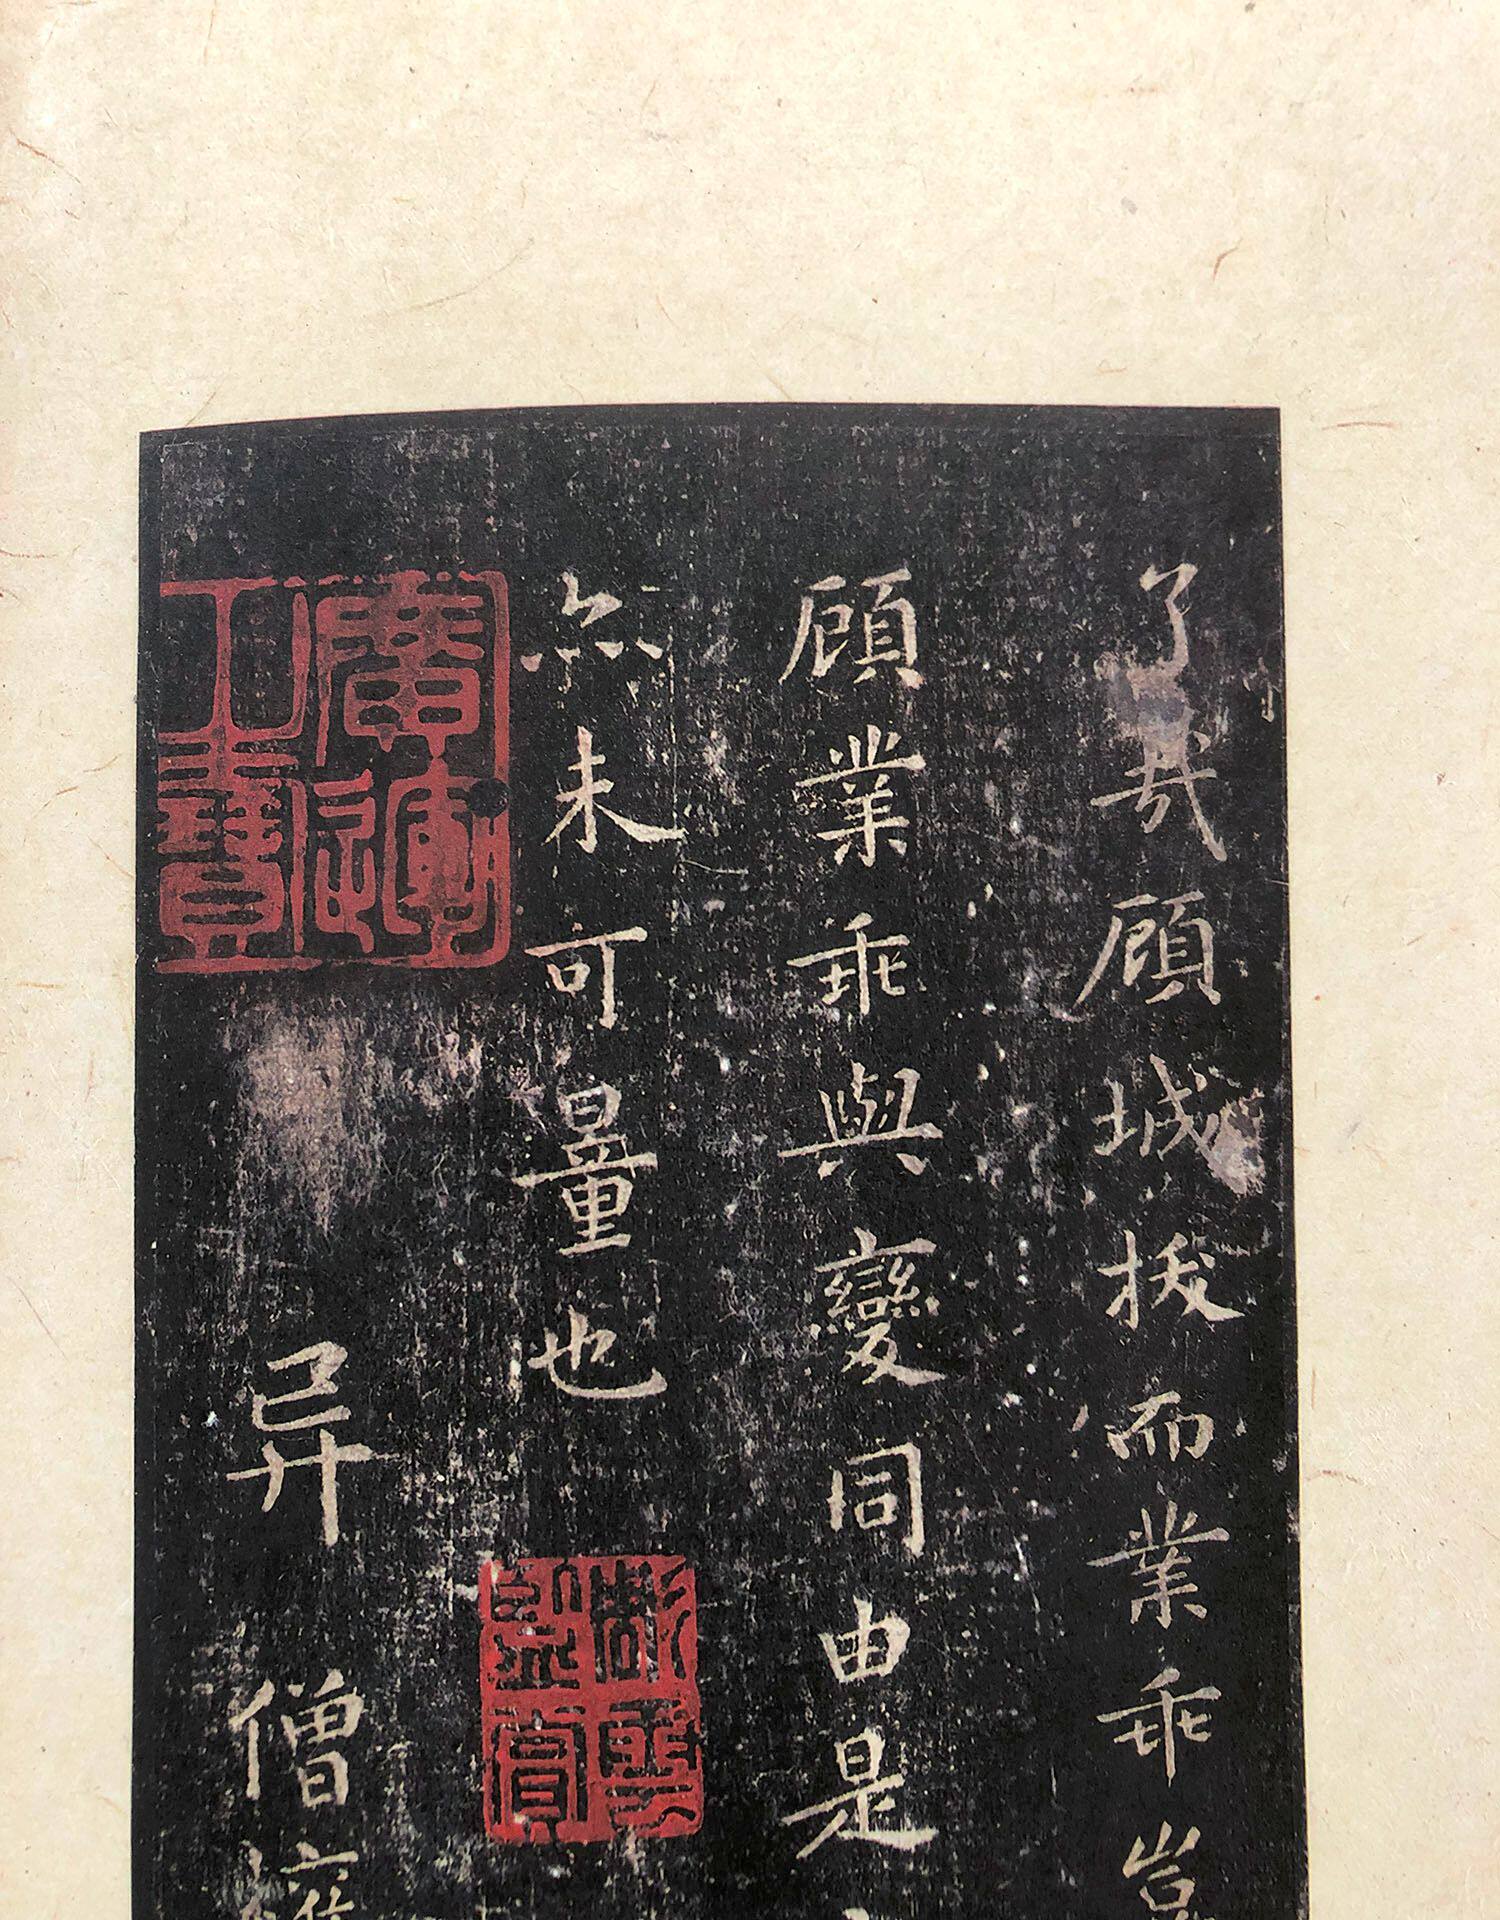 了哉顧城拔而業乖豈
顧業乖與變同由是
亦未可量也
异僧權